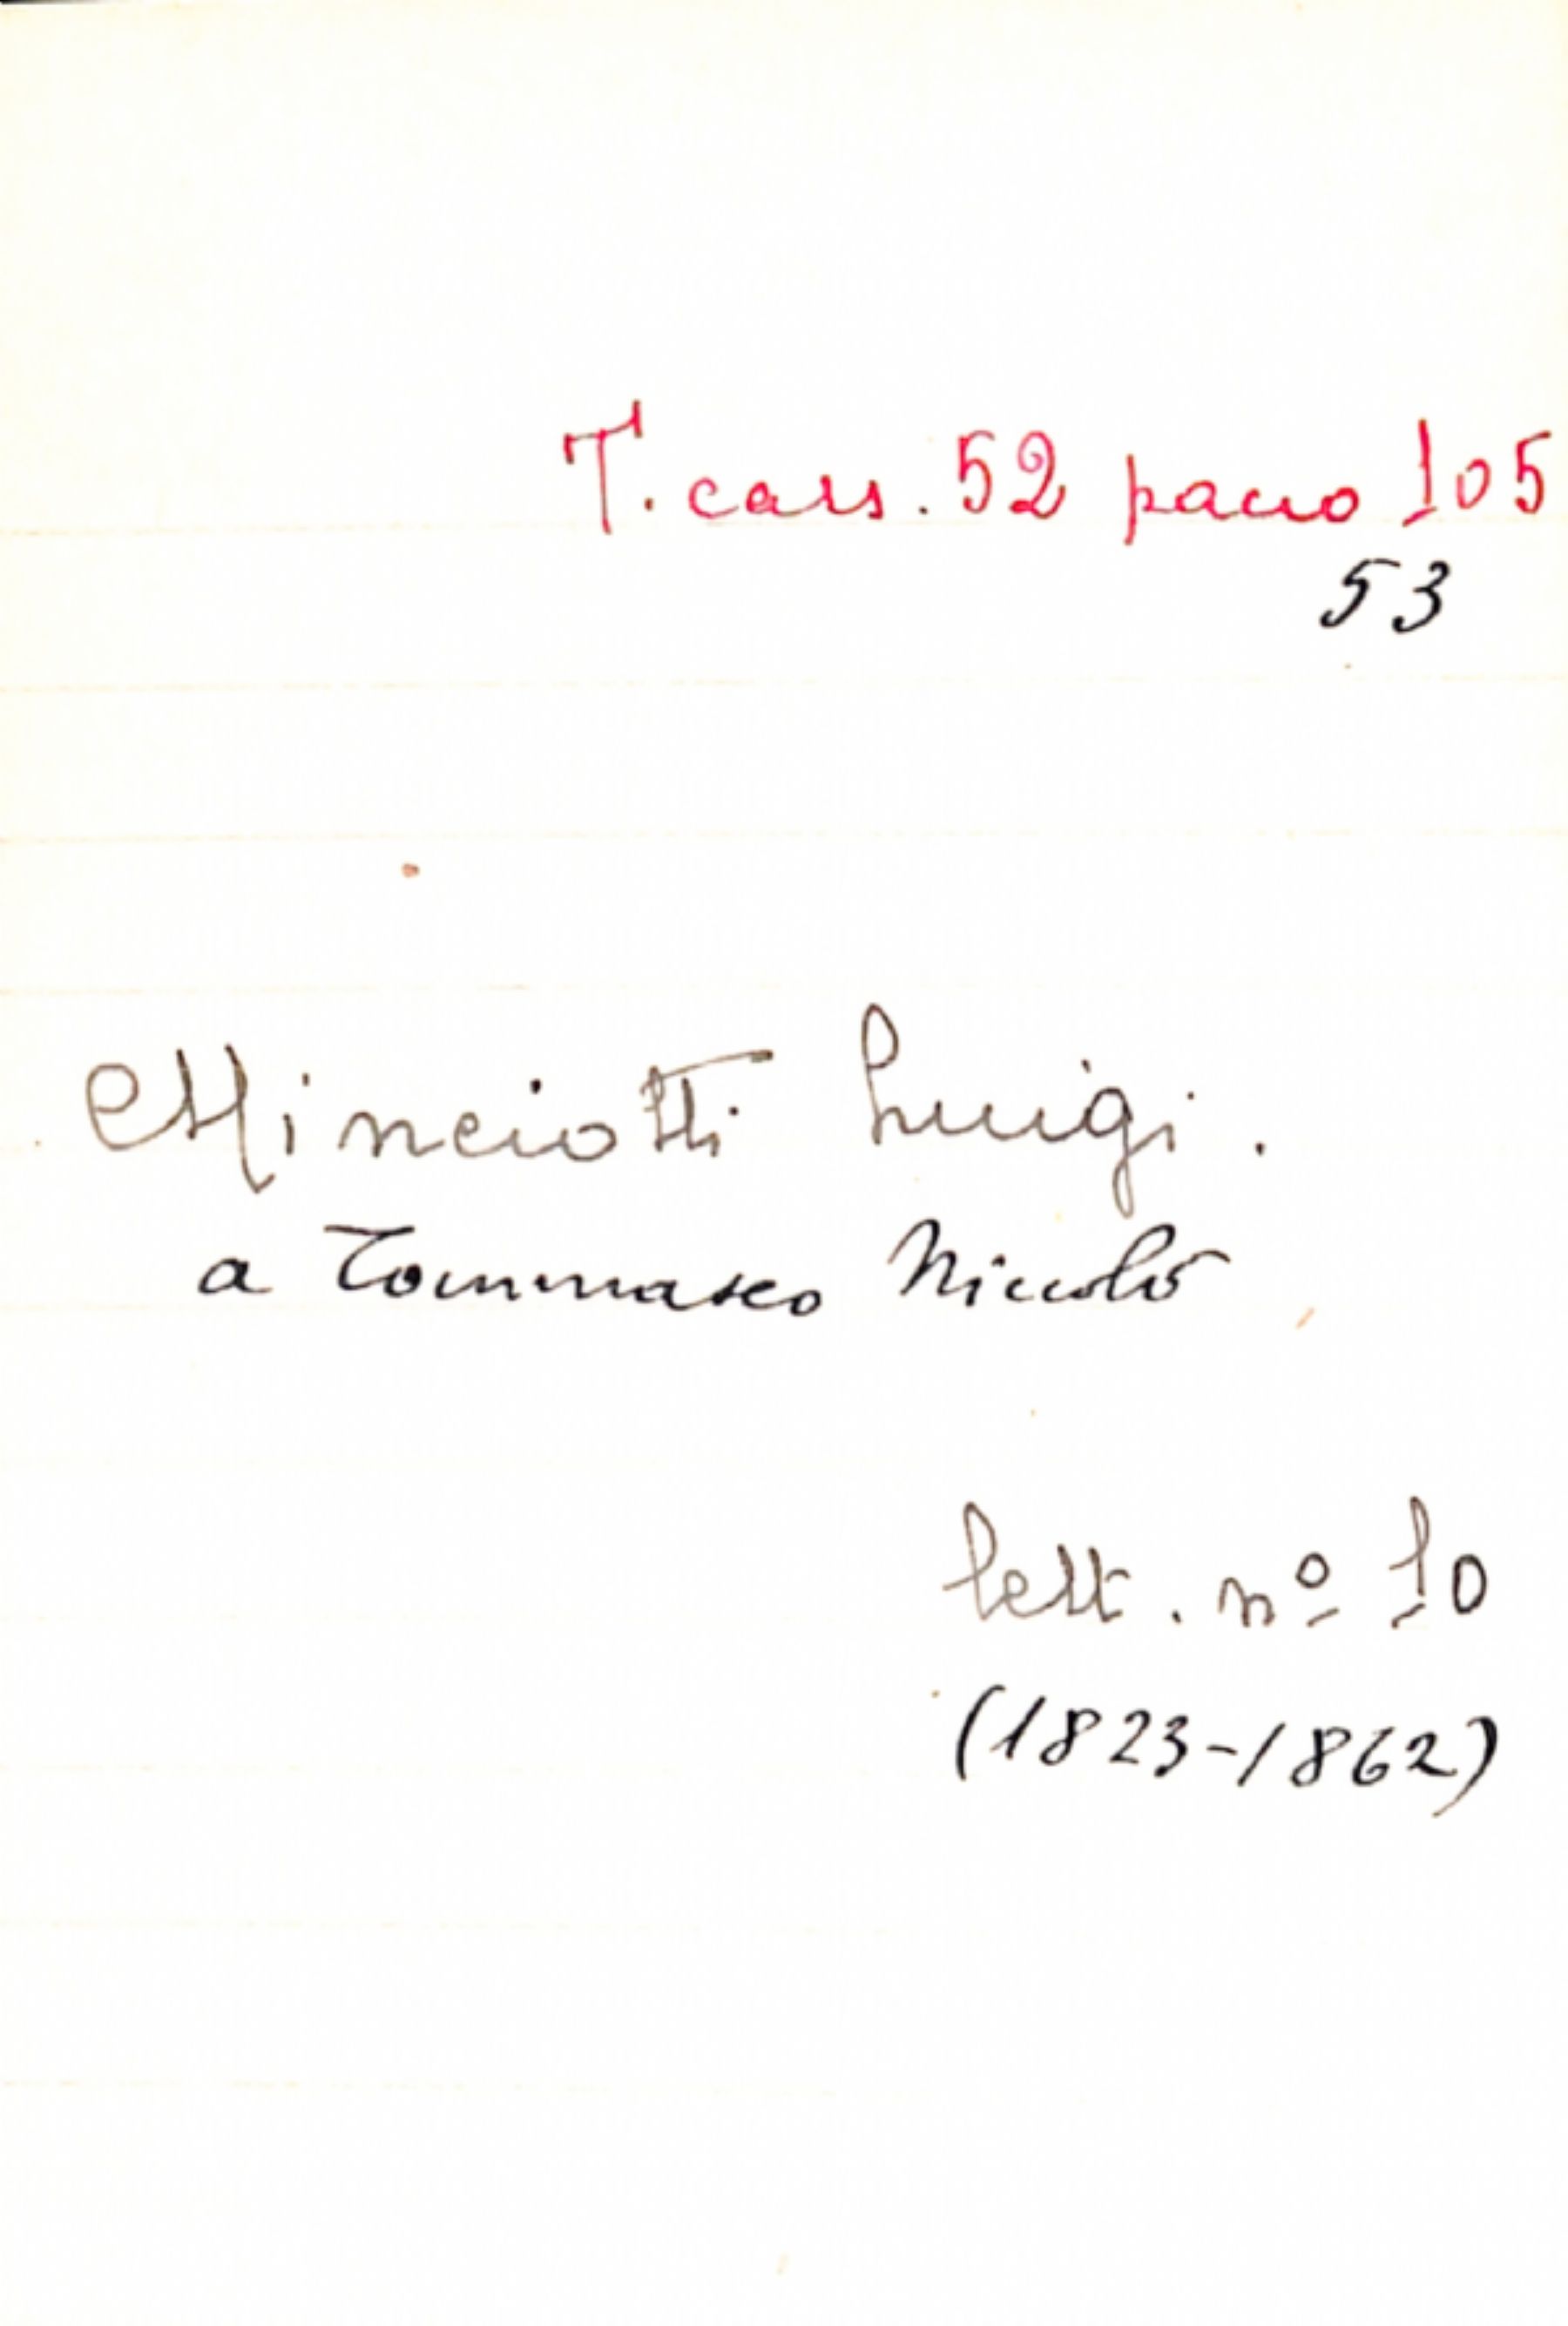 T. cass. 52 pacco 105
53
Minciotti Luigi.
a Tommaseo Niccolò
lett. nº 10
(1823-1862)